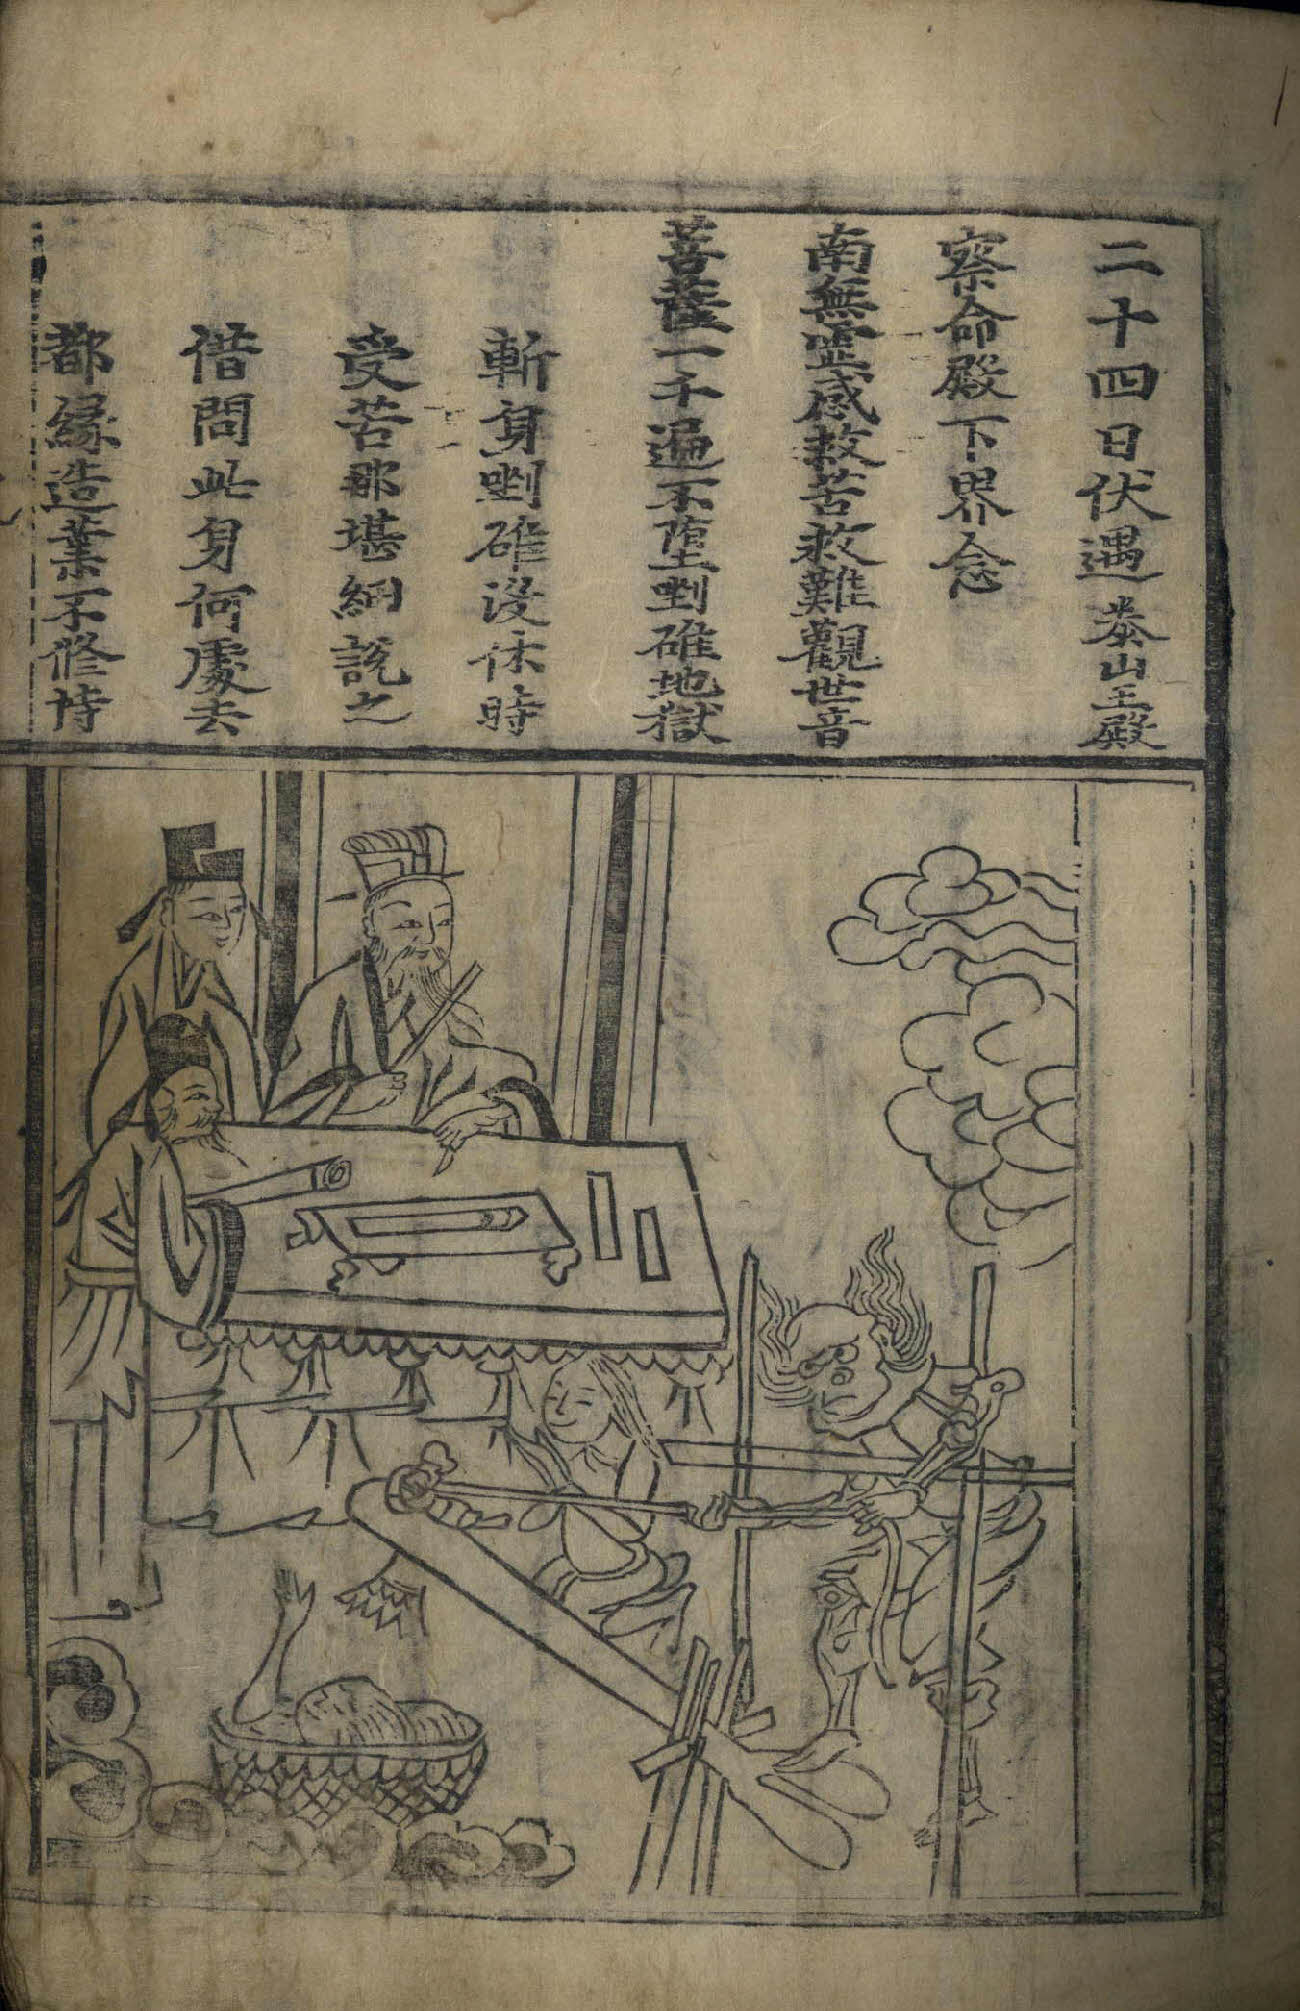 二十四日伏遇泰山王殿
察命殿下界念
南無霊感救苦救難觀世音
菩薩一千遍不墮剉碓地獄
斬身剉碓没休時
受苦那堪細説之
借問此身何處去
都縁造業不修持